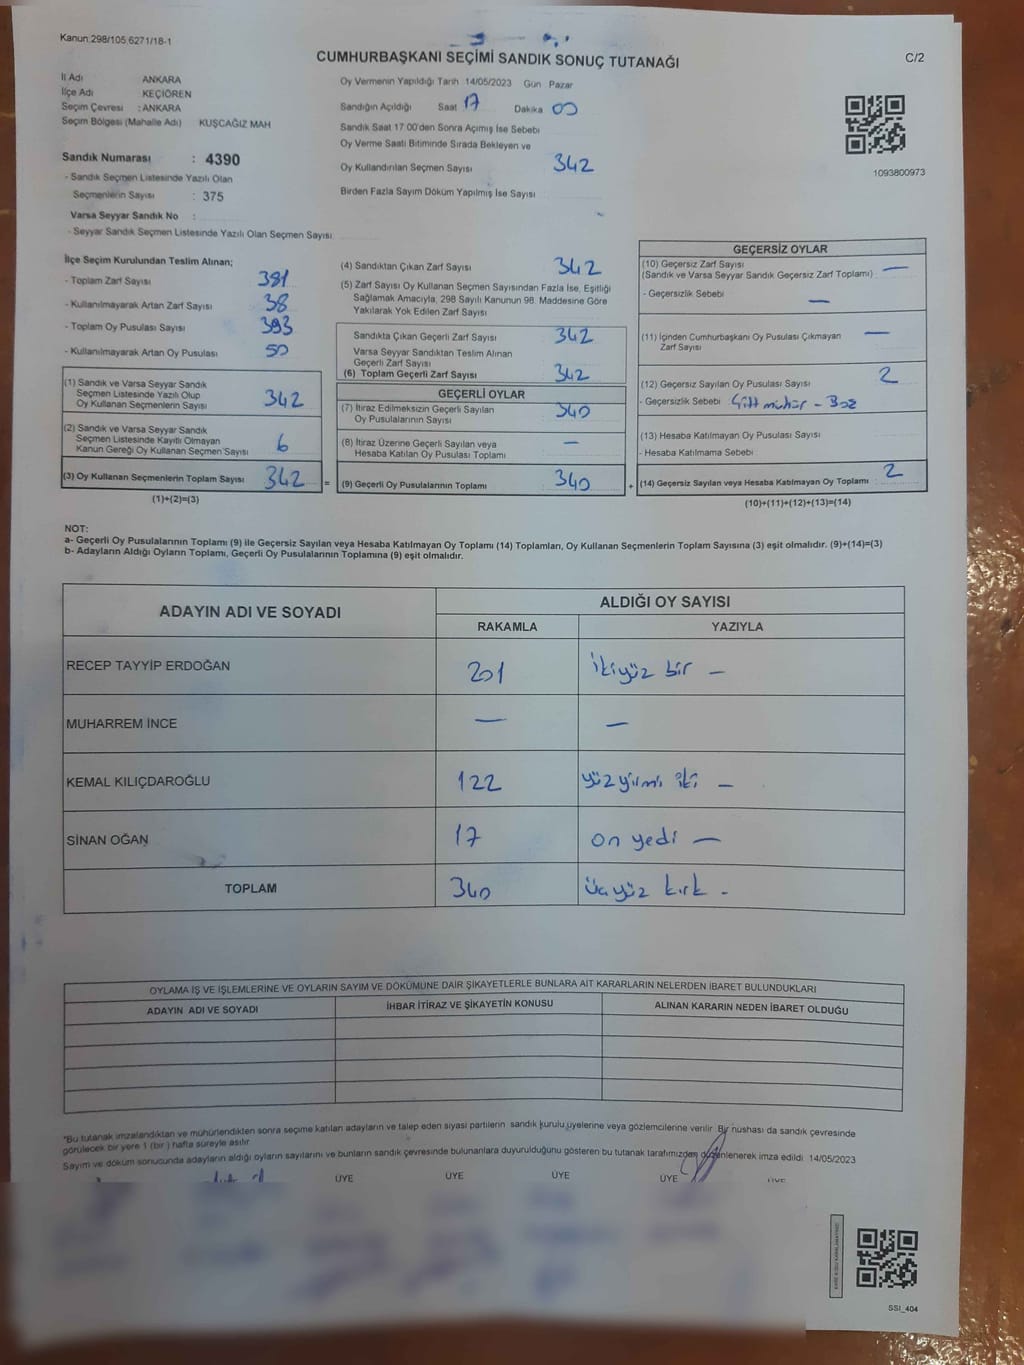 Kanun:298/105,6271/18-1
CUMHURBAŞKANI SEÇİMİ SANDIK SONUÇ TUTANAĞI
C/2
İl Adı ANKARA
İlçe Adı KEÇİÖREN
Seçim Çevresi : ANKARA
Seçim Bölgesi (Mahalle Adı) KUŞCAĞIZ MAH
Sandık Numarası : 4390
- Sandık Seçmen Listesinde Yazılı Olan
Seçmenlerin Sayısı : 375
Varsa Seyyar Sandık No :
- Seyyar Sandık Seçmen Listesinde Yazılı Olan Seçmen Sayısı:
Oy Vermenin Yapıldığı Tarih 14/05/2023 Gün : Pazar
Sandığın Açıldığı Saat 17 Dakika 00
Sandık Saat 17:00'den Sonra Açımış İse Sebebi
Oy Verme Saati Bitiminde Sırada Bekleyen ve
Oy Kullandırılan Seçmen Sayısı 342
Birden Fazla Sayım Döküm Yapılmış İse Sayısı
1093800973
İlçe Seçim Kurulundan Teslim Alınan;
- Toplam Zarf Sayısı 381
- Kullanılmayarak Artan Zarf Sayısı 38
- Toplam Oy Pusulası Sayısı 393
- Kullanılmayarak Artan Oy Pusulası 50
(1) Sandık ve Varsa Seyyar Sandık
Seçmen Listesinde Yazılı Olup
Oy Kullanan Seçmenlerin Sayısı 342
(2) Sandık ve Varsa Seyyar Sandık
Seçmen Listesinde Kayıtlı Olmayan
Kanun Gereği Oy Kullanan Seçmen Sayısı 6
(3) Oy Kullanan Seçmenlerin Toplam Sayısı 342 =
(1)+(2)=(3)
(4) Sandıktan Çıkan Zarf Sayısı 342
(5) Zarf Sayısı Oy Kullanan Seçmen Sayısından Fazla İse, Eşitliği
Sağlamak Amacıyla, 298 Sayılı Kanunun 98. Maddesine Göre
Yakılarak Yok Edilen Zarf Sayısı
Sandıkta Çıkan Geçerli Zarf Sayısı 342
Varsa Seyyar Sandıktan Teslim Alınan
Geçerli Zarf Sayısı
(6) Toplam Geçerli Zarf Sayısı 342
GEÇERLİ OYLAR
(7) İtiraz Edilmeksizin Geçerli Sayılan
Oy Pusulalarının Sayısı 340
(8) İtiraz Üzerine Geçerli Sayılan veya
Hesaba Katılan Oy Pusulası Toplamı —
(9) Geçerli Oy Pusulalarının Toplamı 340 +
GEÇERSİZ OYLAR
(10) Geçersiz Zarf Sayısı
(Sandık ve Varsa Seyyar Sandık Geçersiz Zarf Toplamı) : —
- Geçersizlik Sebebi —
(11) İçinden Cumhurbaşkanı Oy Pusulası Çıkmayan
Zarf Sayısı —
(12) Geçersiz Sayılan Oy Pusulası Sayısı 2
- Geçersizlik Sebebi Çift mühür -
(13) Hesaba Katılmayan Oy Pusulası Sayısı
- Hesaba Katılmama Sebebi
(14) Geçersiz Sayılan veya Hesaba Katılmayan Oy Toplamı : 2
(10)+(11)+(12)+(13)=(14)
NOT:
a- Geçerli Oy Pusulalarının Toplamı (9) ile Geçersiz Sayılan veya Hesaba Katılmayan Oy Toplamı (14) Toplamları, Oy Kullanan Seçmenlerin Toplam Sayısına (3) eşit olmalıdır. (9)+(14)=(3)
b- Adayların Aldığı Oyların Toplamı, Geçerli Oy Pusulalarının Toplamına (9) eşit olmalıdır.
ADAYIN ADI VE SOYADI
ALDIĞI OY SAYISI
RAKAMLA YAZIYLA
RECEP TAYYİP ERDOĞAN 201 ikiyüz bir —
MUHARREM İNCE — —
KEMAL KILIÇDAROĞLU 122 yüzyirmi iki —
SİNAN OĞAN 17 on yedi —
TOPLAM 340 üçyüz kırk -
OYLAMA İŞ VE İŞLEMLERİNE VE OYLARIN SAYIM VE DÖKÜMÜNE DAİR ŞİKAYETLERLE BUNLARA AİT KARARLARIN NELERDEN İBARET BULUNDUKLARI
ADAYIN ADI VE SOYADI İHBAR İTİRAZ VE ŞİKAYETİN KONUSU ALINAN KARARIN NEDEN İBARET OLDUĞU
*Bu tutanak imzalandıktan ve mühürlendikten sonra seçime katılan adayların ve talep eden siyasi partilerin sandık kurulu üyelerine veya gözlemcilerine verilir. Bir nüshası da sandık çevresinde
görülecek bir yere 1 (bir) hafta süreyle asılır.
Sayım ve döküm sonucunda adayların aldığı oyların sayılarını ve bunların sandık çevresinde bulunanlara duyurulduğunu gösteren bu tutanak tarafımızdan düzenlenerek imza edildi. 14/05/2023
ÜYE ÜYE ÜYE ÜYE ÜYE
SSI_404